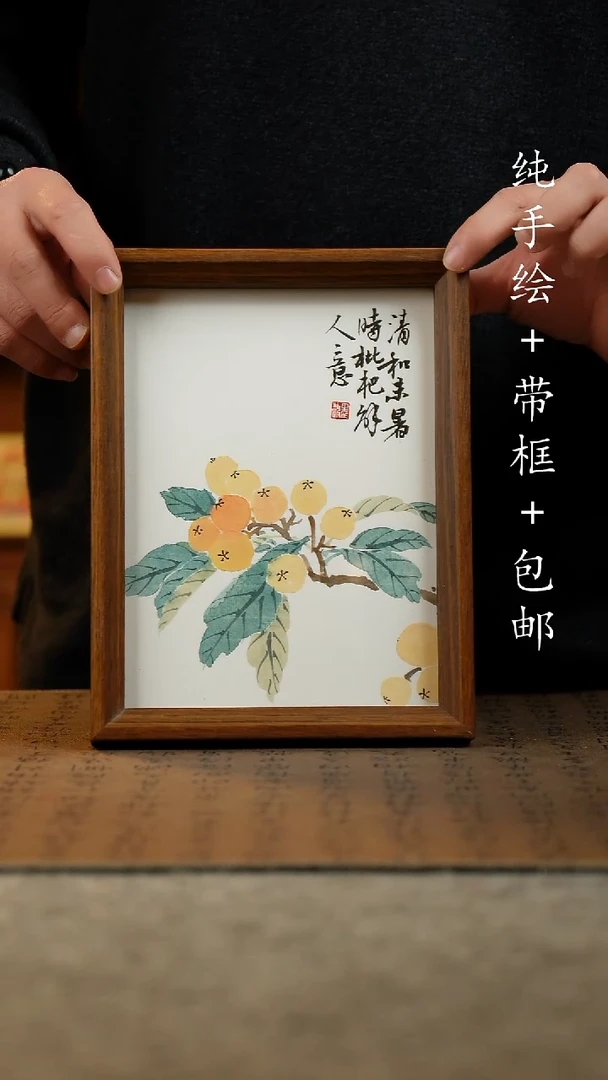 纯手绘+带框+包邮
清和未暑
時枇杷解
人意